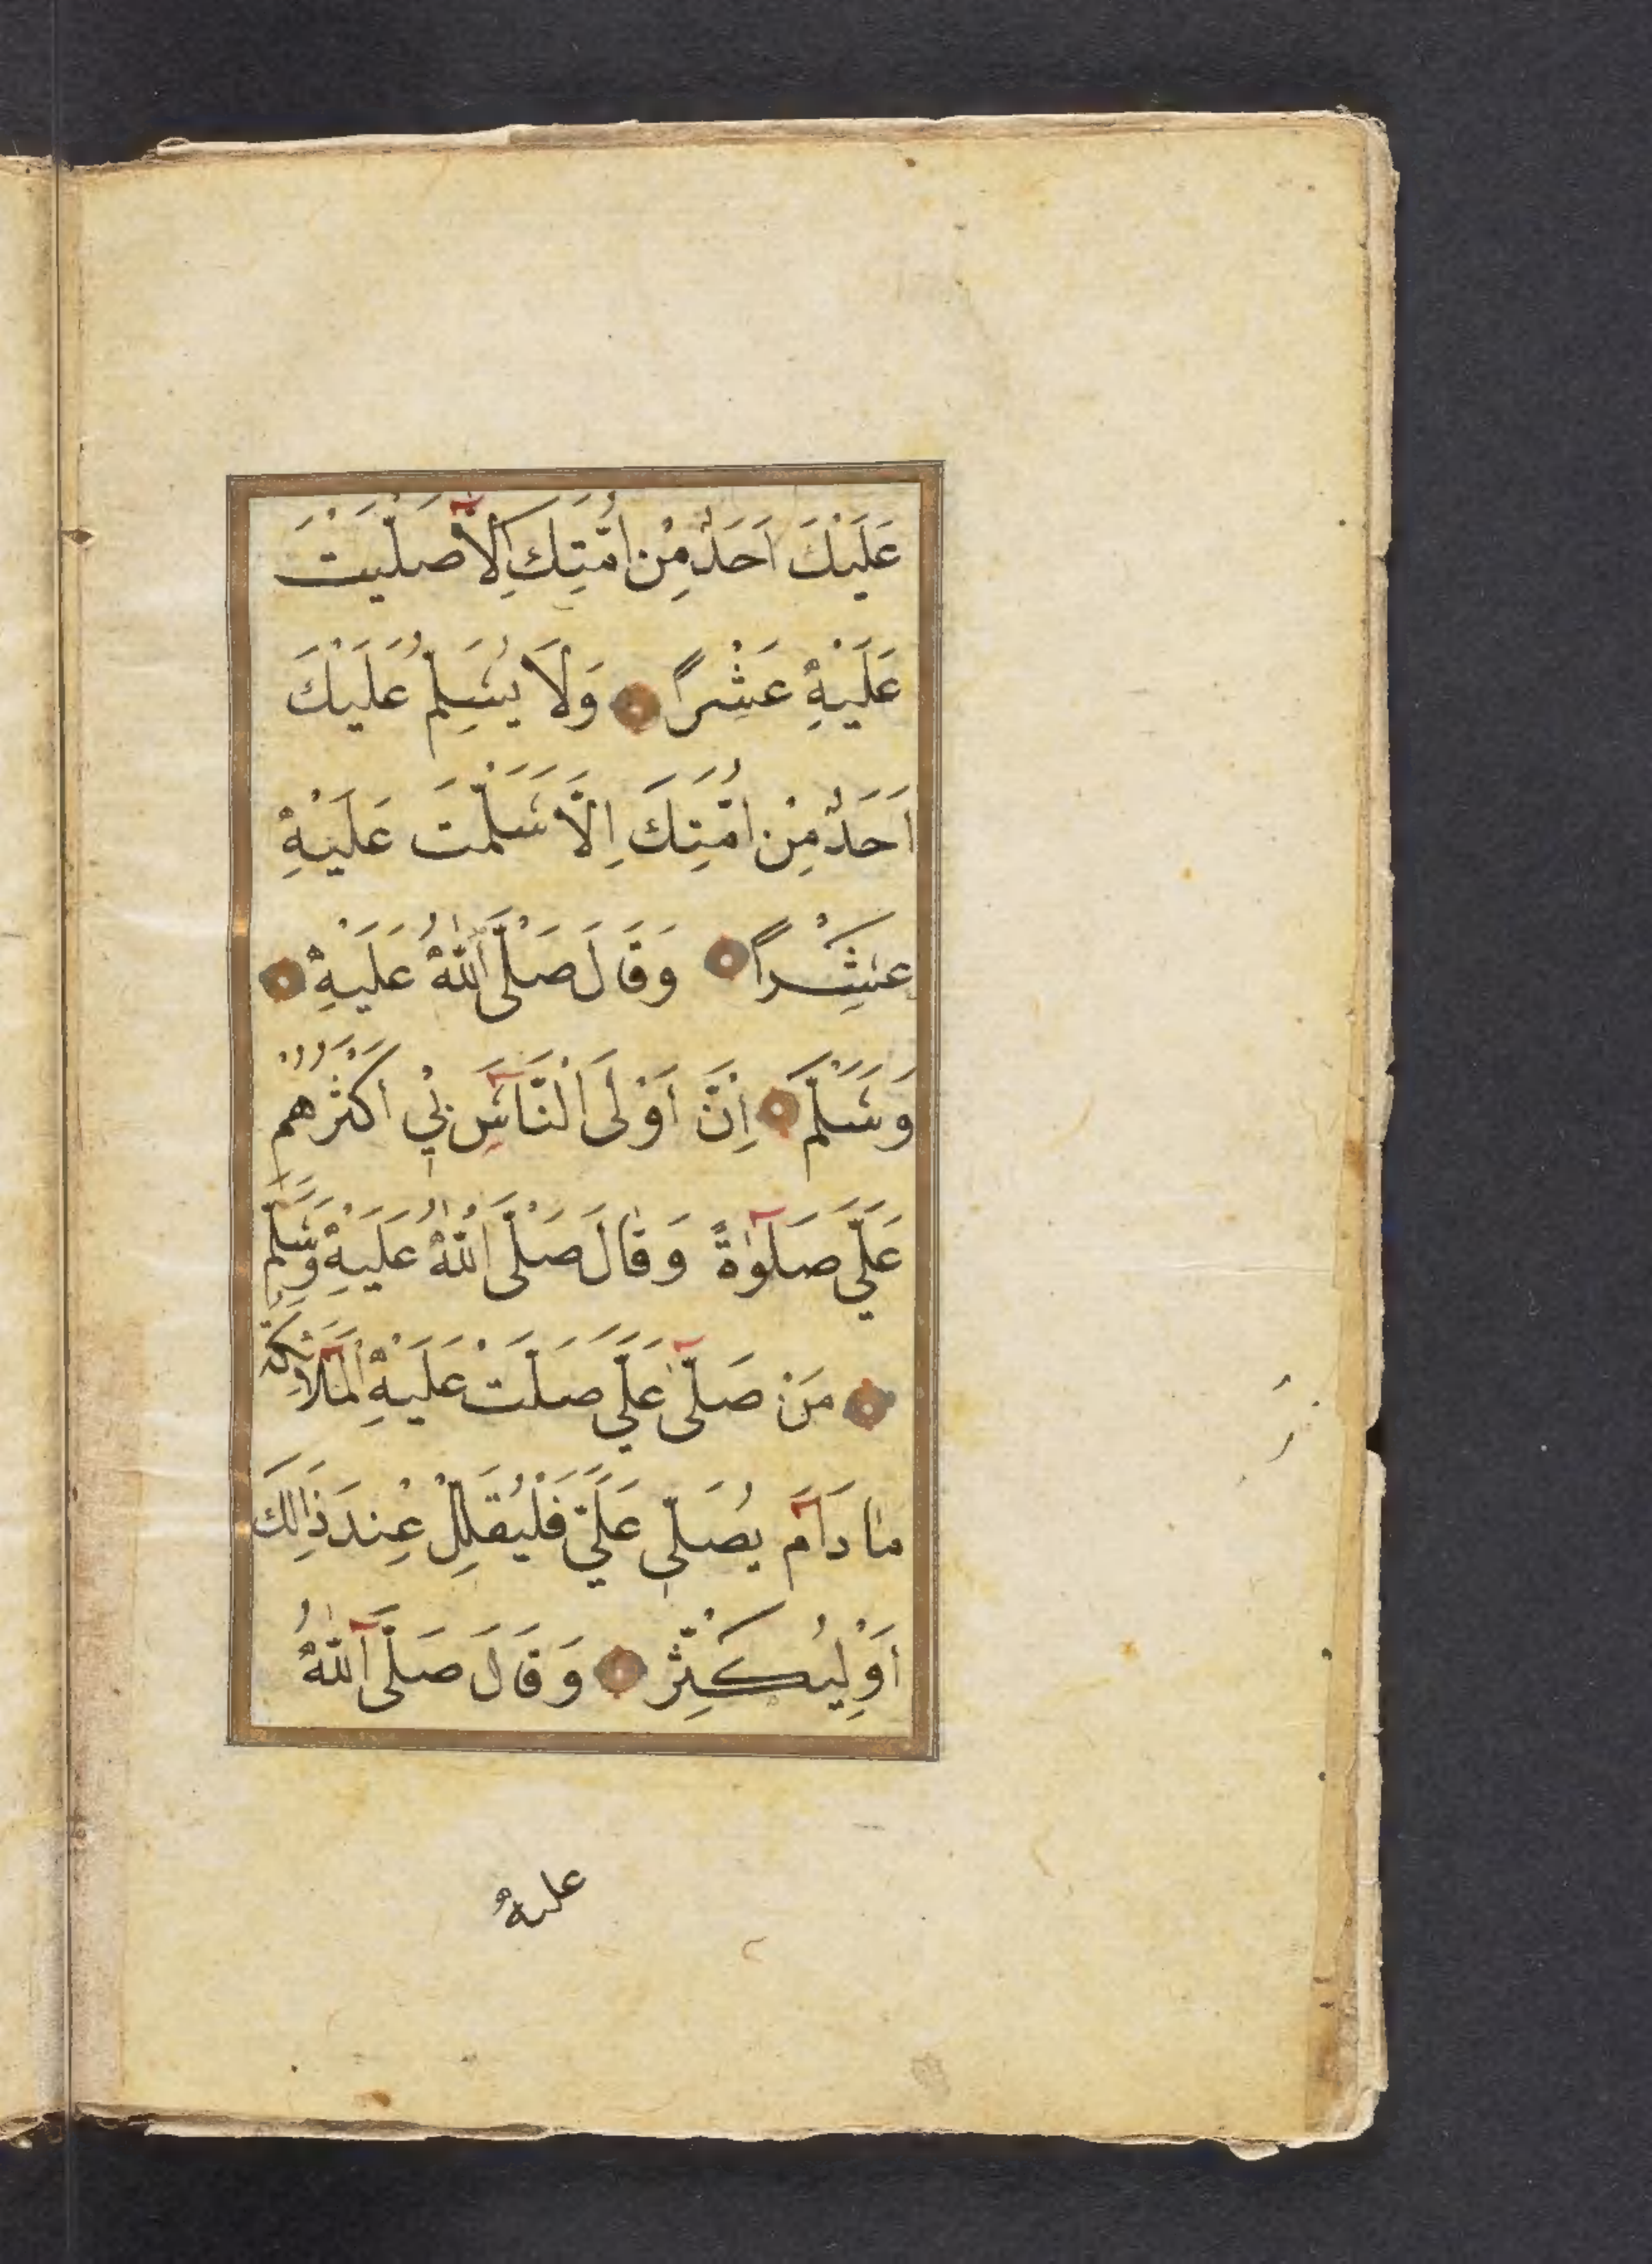 عَلَيْكَ اَحَدٌ مِنْ اُمَّتِكَ اِلَّا صَلَّيْتَ
عَلَيْهِ عَشْرًا وَلَا يُسَلِّمُ عَلَيْكَ
اَحَدٌ مِنْ اُمَّتِكَ اِلَّا سَلَّمْتَ عَلَيْهِ
عَشْرًا وَقَالَ صَلَّى اللّٰهُ عَلَيْهِ
وَسَلَّمَ اِنَّ اَوْلَى النَّاسِ بِي اَكْثَرُهُمْ
عَلَيَّ صَلَوٰةً وَقَالَ صَلَّى اللّٰهُ عَلَيْهِ وَسَلَّمَ
مَنْ صَلَّى عَلَيَّ صَلَّتْ عَلَيْهِ الْمَلَائِكَةُ
مَا دَامَ يُصَلِّي عَلَيَّ فَلْيُقَلِّلْ عِنْدَ ذَالِكَ
اَوْلِيُكَثِّرْ وَقَالَ صَلَّى اللّٰهُ
عليه